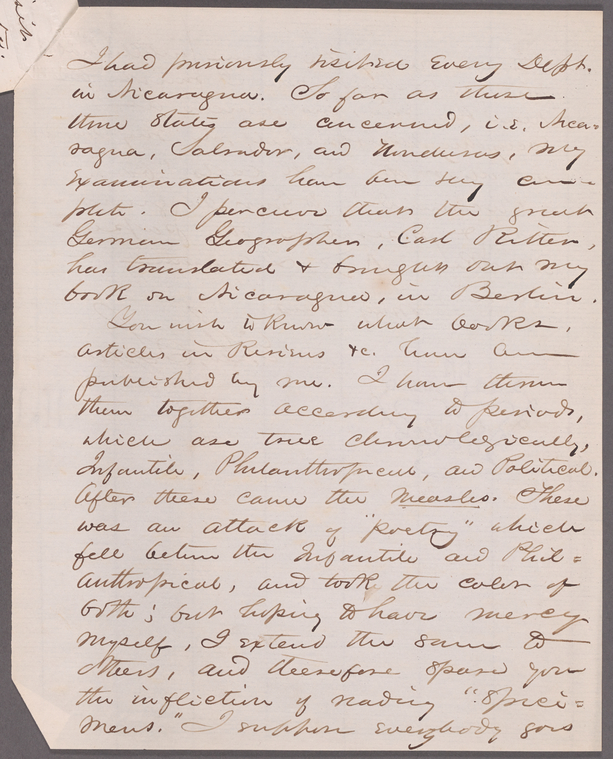 I had previously visited every Dept.
in Nicaragua. So far as these
three States are concerned, i.e. Nica-
ragua, Salvador, and Honduras, my
examinations have been very com-
plete. I perceive that the great
German Geographer, Carl Ritter,
has translated & brought out my
book on Nicaragua, in Berlin.
You wish to know what books,
articles in Reviews &c. have been
published by me. I have thrown
them together according to periods,
which are true chronologically,
Infantile, Philanthropical, and Political.
After these came the Measles. There
was an attack of "poetry" which
fell between the Infantile and Phil=
anthropical, and took the color of
both; but hoping to have mercy
myself, I extend the same to
others, and therefore spare you
the infliction of reading "speci=
mens." I suppose everybody goes